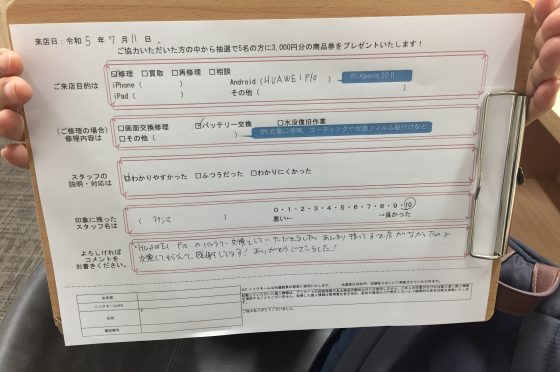 来店日:令和 5 年 7 月 11 日.
ご協力いただいた方の中から抽選で5名の方に3,000円分の商品券をプレゼントいたします!
ご来店目的は
☑修理 □買取 □再修理 □相談
iPhone ( ) Android (HUAWEI P10) 例:Xperia 10 II
iPad ( ) その他 ( )
(ご修理の場合)
修理内容は
□画面交換修理 ☑バッテリー交換 □水没復旧作業
□その他 ( ) 例:充電口修理、コーティングや保護フィルム貼付けなど
スタッフの
説明・対応は
☑わかりやすかった □ふつうだった □わかりにくかった
印象に残った
スタッフ名は
0・1・2・3・4・5・6・7・8・9・10
悪い← →良かった
よろしければ
コメントを
お書きください。
HUAWEI P10 のバッテリー交換をしていただきました。あんまり扱ってるお店がなかったので
交換してもらえて感謝してます! ありがとうございました!
お名前
ニックネーム※2
住所
〒
電話番号
ご協力ありがとうございました。